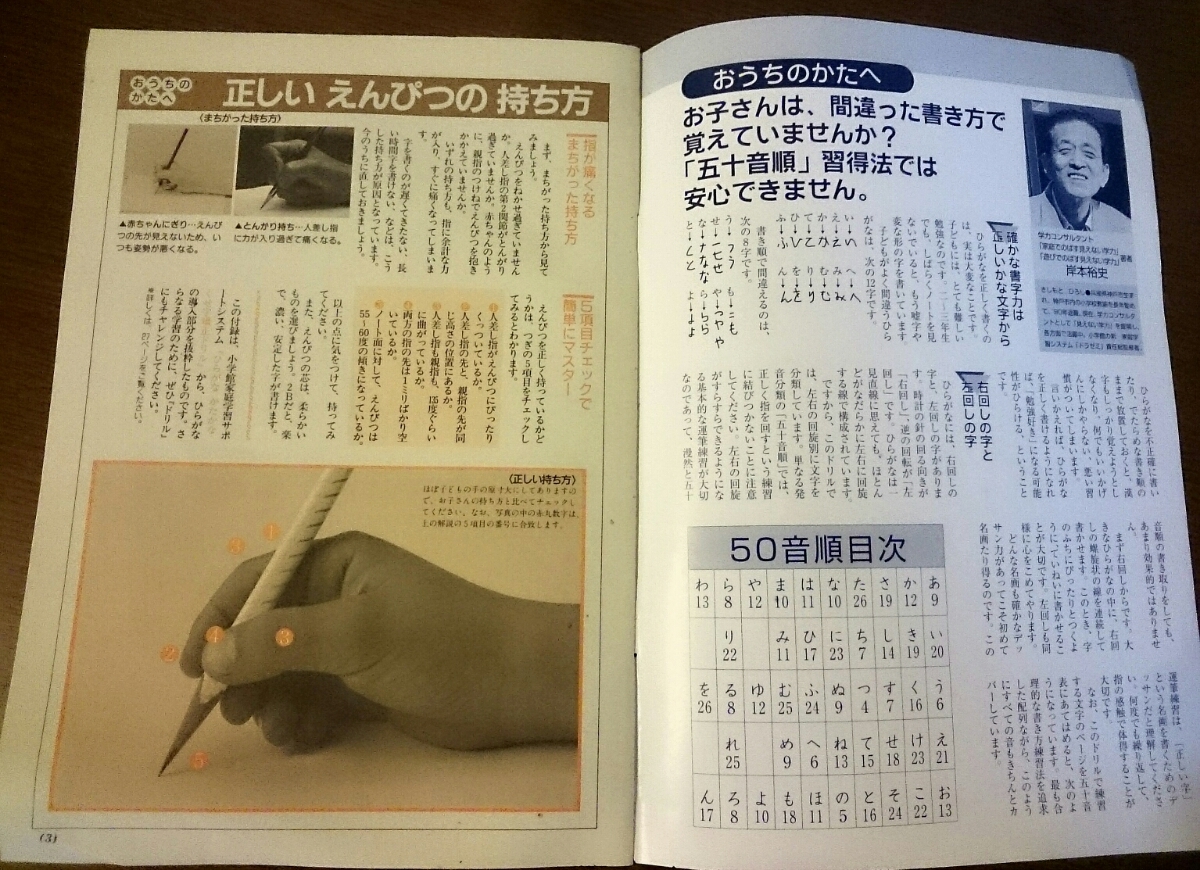 おうちのかたへ
正しい えんぴつの 持ち方
〈まちがった持ち方〉
▲赤ちゃんにぎり…えんぴ
つの先が見えないため、い
つも姿勢が悪くなる。
▲とんがり持ち…人差し指
に力が入り過ぎて痛くなる。
指が痛くなる
まちがった持ち方
まず、まちがった持ち方から見て
みましょう。
えんぴつをねかせ過ぎていません
か。人差し指の第2関節がとんがり
過ぎていませんか。赤ちゃんのよう
に、親指のつけねでえんぴつを抱き
かかえていませんか。
いずれの持ち方も、指に余計な力
が入り、すぐに痛くなってしまいま
す。
字を書くのが遅くてきたない、長
い時間字を書けない、などは、こう
した持ち方が原因となっています。
今のうちに直しておきましょう。
5項目チェックで
簡単にマスター
えんぴつを正しく持っているかど
うかは、つぎの5項目をチェックし
てみるとわかります。
①人差し指がえんぴつにぴったり
くっついているか。
②人差し指の先と、親指の先が同
じ高さの位置にあるか。
③人差し指も親指も、135度ぐらい
に曲がっているか。
④両方の指の先は1~2ミリばかり空
いているか。
⑤ノート面に対して、えんぴつは
55~60度の傾きになっているか。
以上の点に気をつけて、持ってみ
てください。
また、えんぴつの芯は、柔らかい
ものを選びましょう。2Bだと、楽
に、濃い、安定した字が書けます。
この付録は、小学館家庭学習サポ
ートシステム
から、ひらがな
の導入部分を抜粋したものです。さ
らなる学習のために、ぜひ『ドリル』
にもチャレンジしてください。
〈正しい持ち方〉
ほぼ子どもの手の原寸大にしてありますの
で、お子さんの持ち方と比べてチェックし
てください。なお、写真の中の赤丸数字は、
上の解説の5項目の番号に合致します。
①
③
④
③
②
⑤
(3)
おうちのかたへ
お子さんは、間違った書き方で
覚えていませんか?
「五十音順」習得法では
安心できません。
学力コンサルタント
「家庭でのばす見えない学力」
「遊びでのばす見えない学力」著者
岸本裕史
確かな書字力は
正しいかな文字から
ひらがなを正しく書くの
は、実は大変なことです。
子どもには、とても難しい
勉強なのです。二、三年生
でも、しばらくノートを見
ないでいると、もう嘘字や
変な形の字を書いています。
子どもがよく間違うひら
がなは、次の12字です。
書き順で間違えるのは、
次の8字です。
ひらがなを不正確に書い
たり、でたらめな書き順の
ままで放置しておくと、漢
字もしっかり覚えようとし
なくなり、何でもいいかげ
んにしかやらない、悪い習
慣がついてしまいます。
言いかえれば、ひらがな
を正しく書けるようになれ
ば、勉強好き〟になる可能
性がひらける、ということ
右回しの字と
左回しの字
ひらがなには、右回しの
字と、左回しの字がありま
す。時計の針の回る向きが
「右回し」、逆の回転が「左
回し」です。ひらがなは一
見直線に思えても、ほとん
どがなだらかに左右に回旋
する線で構成されています。
ですから、このドリルで
は、左右の回旋別に文字を
分類しています。単なる発
音分類の「五十音順」では、
正しく指を回すという練習
に結びつかないことに注意
してください。左右の回旋
がすらすらできるようにな
る基本的な運筆練習が大切
なのであって、漫然と五十
音順の書き取りをしても、
あまり効果的ではありませ
ん。
まず右回しからです。大
きなひらがなの中に、右回
しの螺旋状の線を連続して
書かせます。このとき、字
のふちにぴったりとつくよ
うにていねいに書かせるこ
とが大切です。左回しも同
様に心をこめてやります。
どんな名画も確かなデッ
サン力があってこそ初めて
名画たり得るのです。この
運筆練習は、「正しい字」
という名画を書くためのデ
ッサンだと理解してくださ
い。何度でも繰り返して、
指の感触で体得することが
大切です。
なお、このドリルで練習
する文字のページを五十音
表にあてはめると、次のよ
うになっています。最も合
理的な書き方練習法を追求
した配列ながら、このよう
にすべての音もきちんとカ
バーしています。
50音順目次
わ ら や ま は な た さ か あ
13 8 12 10 11 10 26 19 12 9
り み ひ に ち し き い
22 11 17 23 7 14 19 20
を る ゆ む ふ ぬ つ す く う
26 8 12 25 24 9 4 7 16 6
れ め へ ね て せ け え
25 9 6 13 15 18 23 21
ん ろ よ も ほ の と そ こ お
17 8 10 18 11 5 16 24 22 13